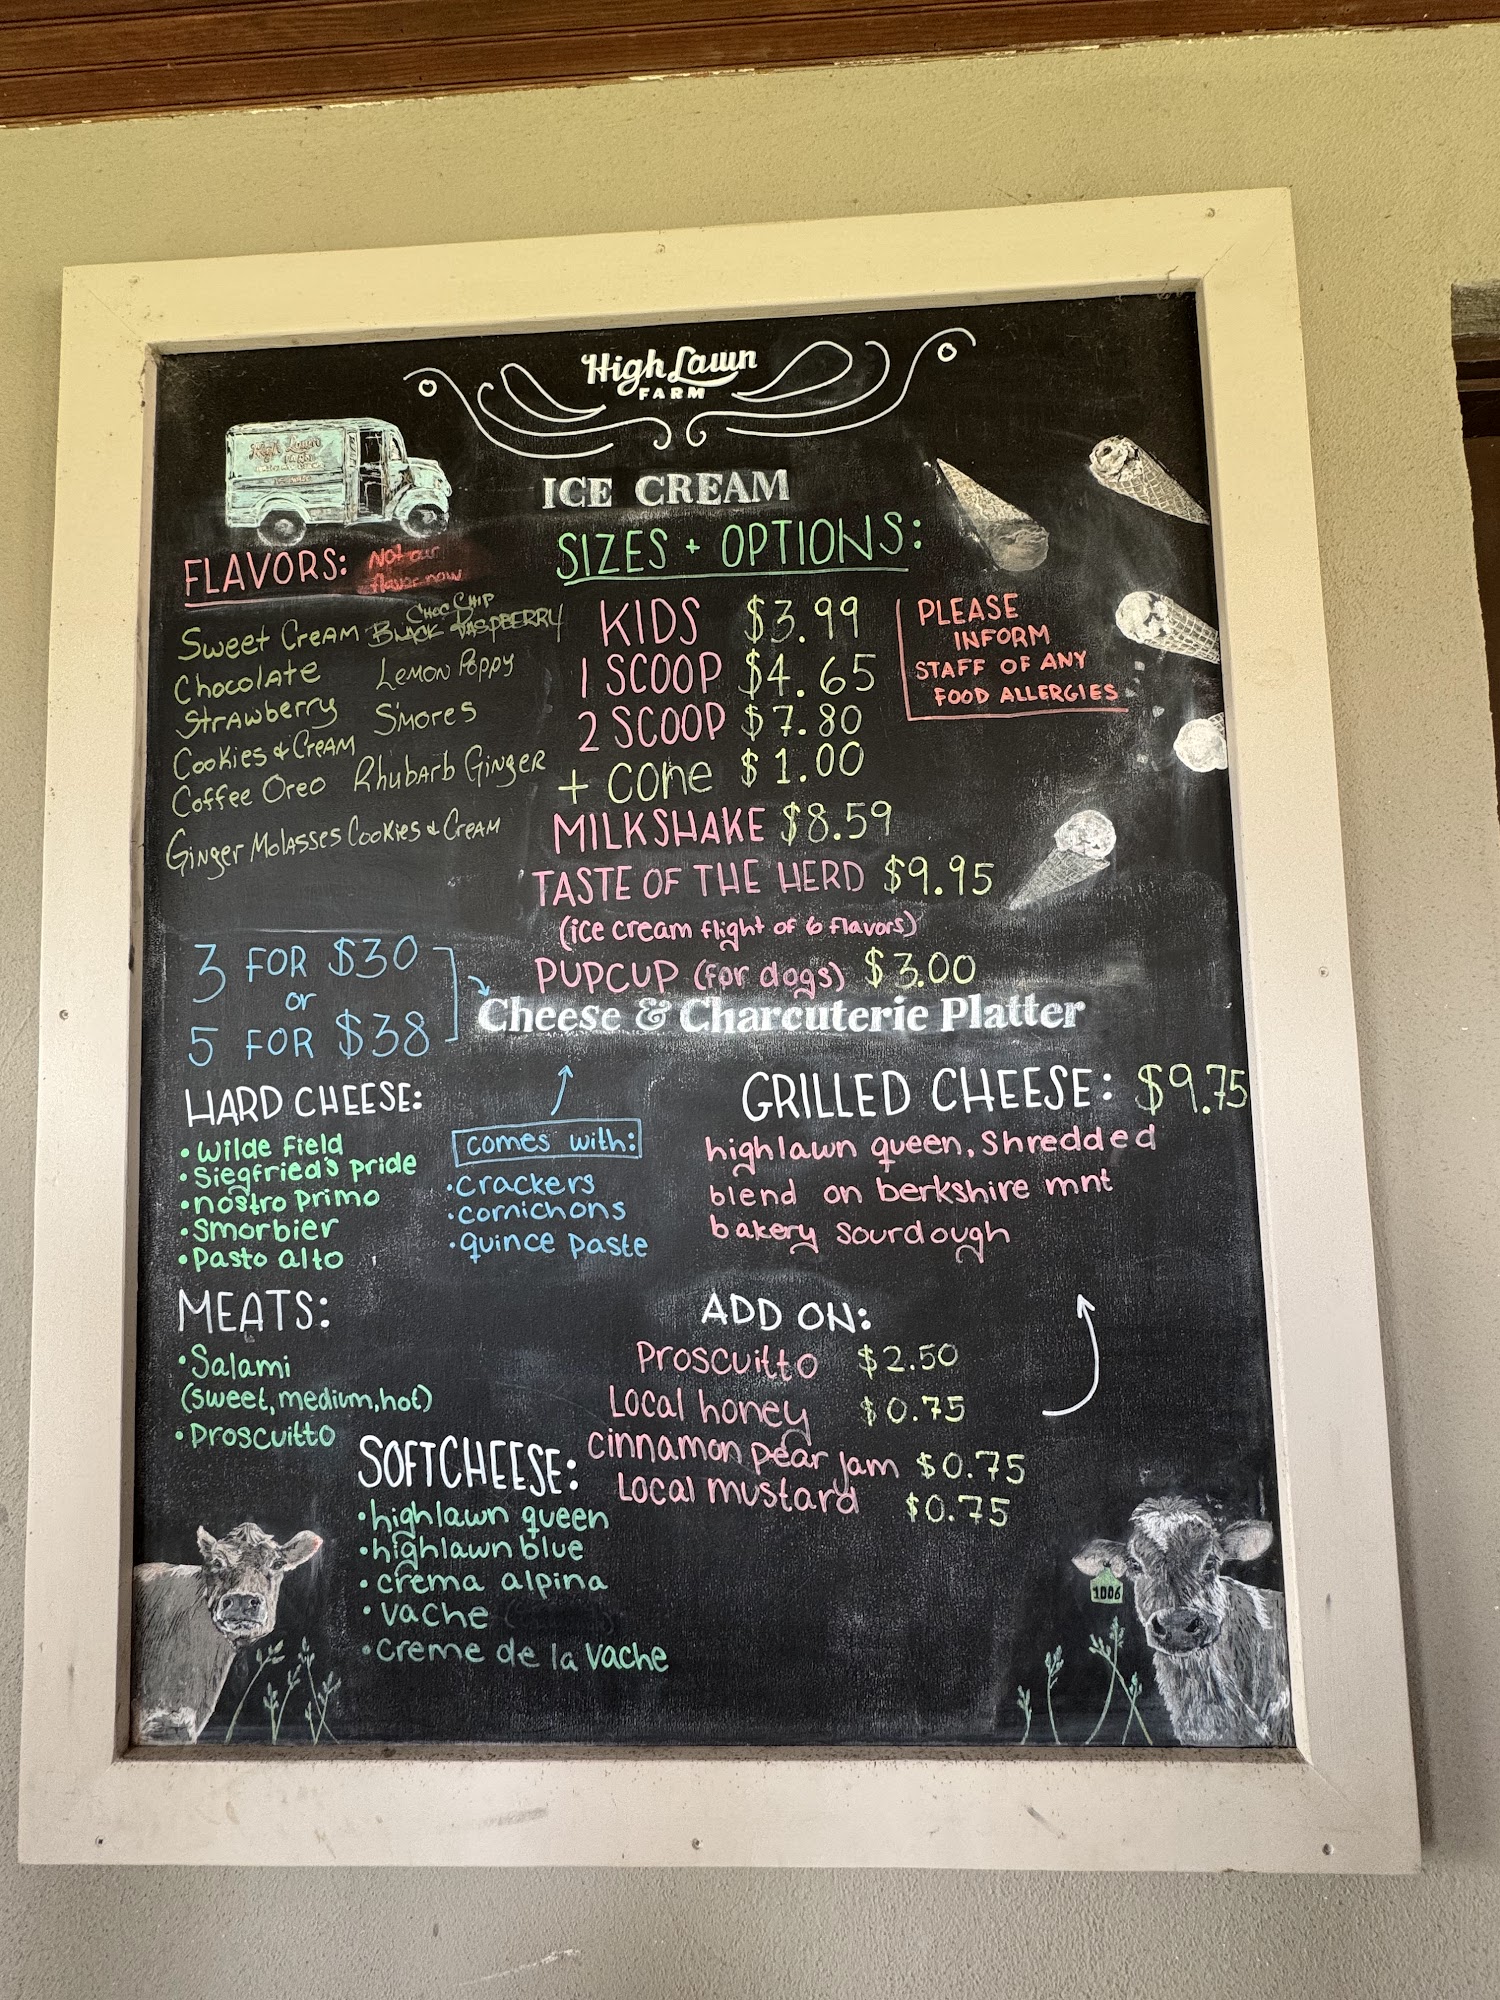 High Lawn
FARM
ICE CREAM
High Lawn
FLAVORS:
Not our
flavor now
Sweet Cream
Chocolate
Strawberry
Cookies & Cream
Coffee Oreo
Ginger Molasses Cookies & Cream
Choc Chip
Black Raspberry
Lemon Poppy
S'mores
Rhubarb Ginger
SIZES + OPTIONS:
KIDS $3.99
1 SCOOP $4.65
2 SCOOP $7.80
+ cone $1.00
MILKSHAKE $8.59
TASTE OF THE HERD $9.95
(ice cream flight of 6 flavors)
PUPCUP (for dogs) $3.00
PLEASE
INFORM
STAFF OF ANY
FOOD ALLERGIES
3 FOR $30
or
5 FOR $38
Cheese & Charcuterie Platter
HARD CHEESE:
• Wilde Field
• Siegfried's pride
• nostro primo
• Smorbier
• Pasto alto
comes with:
• crackers
• cornichons
• quince paste
GRILLED CHEESE: $9.75
highlawn queen, shredded
blend on berkshire mnt
bakery sourdough
MEATS:
• Salami
(sweet, medium, hot)
• Proscuitto
ADD ON:
Proscuitto $2.50
Local honey $0.75
cinnamon pear jam $0.75
Local mustard $0.75
SOFTCHEESE:
• highlawn queen
• highlawn blue
• crema alpina
• vache
• creme de la vache
1006